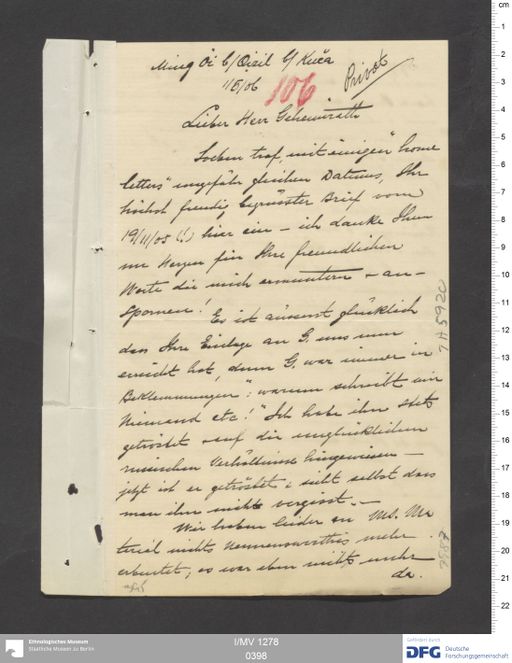 Ming Öi b/ Qizil b/ Kuča
1/5/06
Privat
106
Lieber Herr Geheimrath
Soeben traf, mit einigen "home
letters" ungefähr gleichen Datums, Ihr
höchst freudig begrüsster Brief vom
19/11/05 (!) hier ein – ich danke Ihnen
von Herzen für Ihre freundlichen
Worte die mich ermuntern + an-
spornen! Es ist äusserst glücklich
dass Ihre Einlage an G. uns nun
erreicht hat, denn G. war immer in
Beklemmungen: "warum schreibt mir
Niemand etc!" Ich habe ihn stets
getröstet + auf die unglücklichen
russischen Verhältnisse hingewiesen –
jetzt ist er getröstet & sieht selbst dass
man ihn nicht vergisst. –
Wir haben leider an MS. Ma
terial nichts Nennenswerthes mehr
erbeutet; es war eben nichts mehr
da.
TA 5920
Ethnologisches Museum
Staatliche Museen zu Berlin
I/MV 1278
0398
Gefördert durch
DFG Deutsche
Forschungsgemeinschaft
cm
1
2
3
4
5
6
7
8
9
10
11
12
13
14
15
16
17
18
19
20
21
22
4